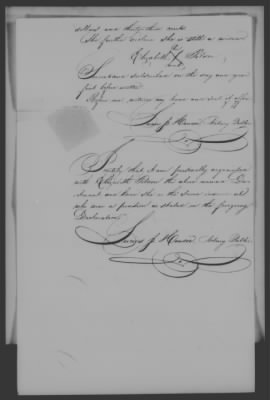 dollars and thirty three cents
She further declares she is still a widow
her
Elizabeth X Filson
mark
Sworn and subscribed on the day and year
first before written
Before me, witness my hand and seal of office
J. Hanson Notary Public
I certify that I am personally acquainted
with Elizabeth Filson the above named De
clarant and know she is the same person and
who was a as stated in the foregoing
Declaration
J. Hanson Notary Public